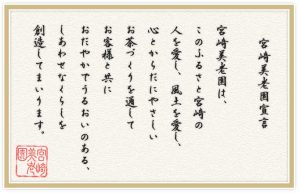 宮崎美老園宣言
宮崎美老園は、
このふるさと宮崎の
人を愛し、風土を愛し、
心とからだにやさしい
お茶づくりを通して
お客様と共に
おだやかでうるおいのある、
しあわせなくらしを
創造してまいります。
宮崎
美老
園